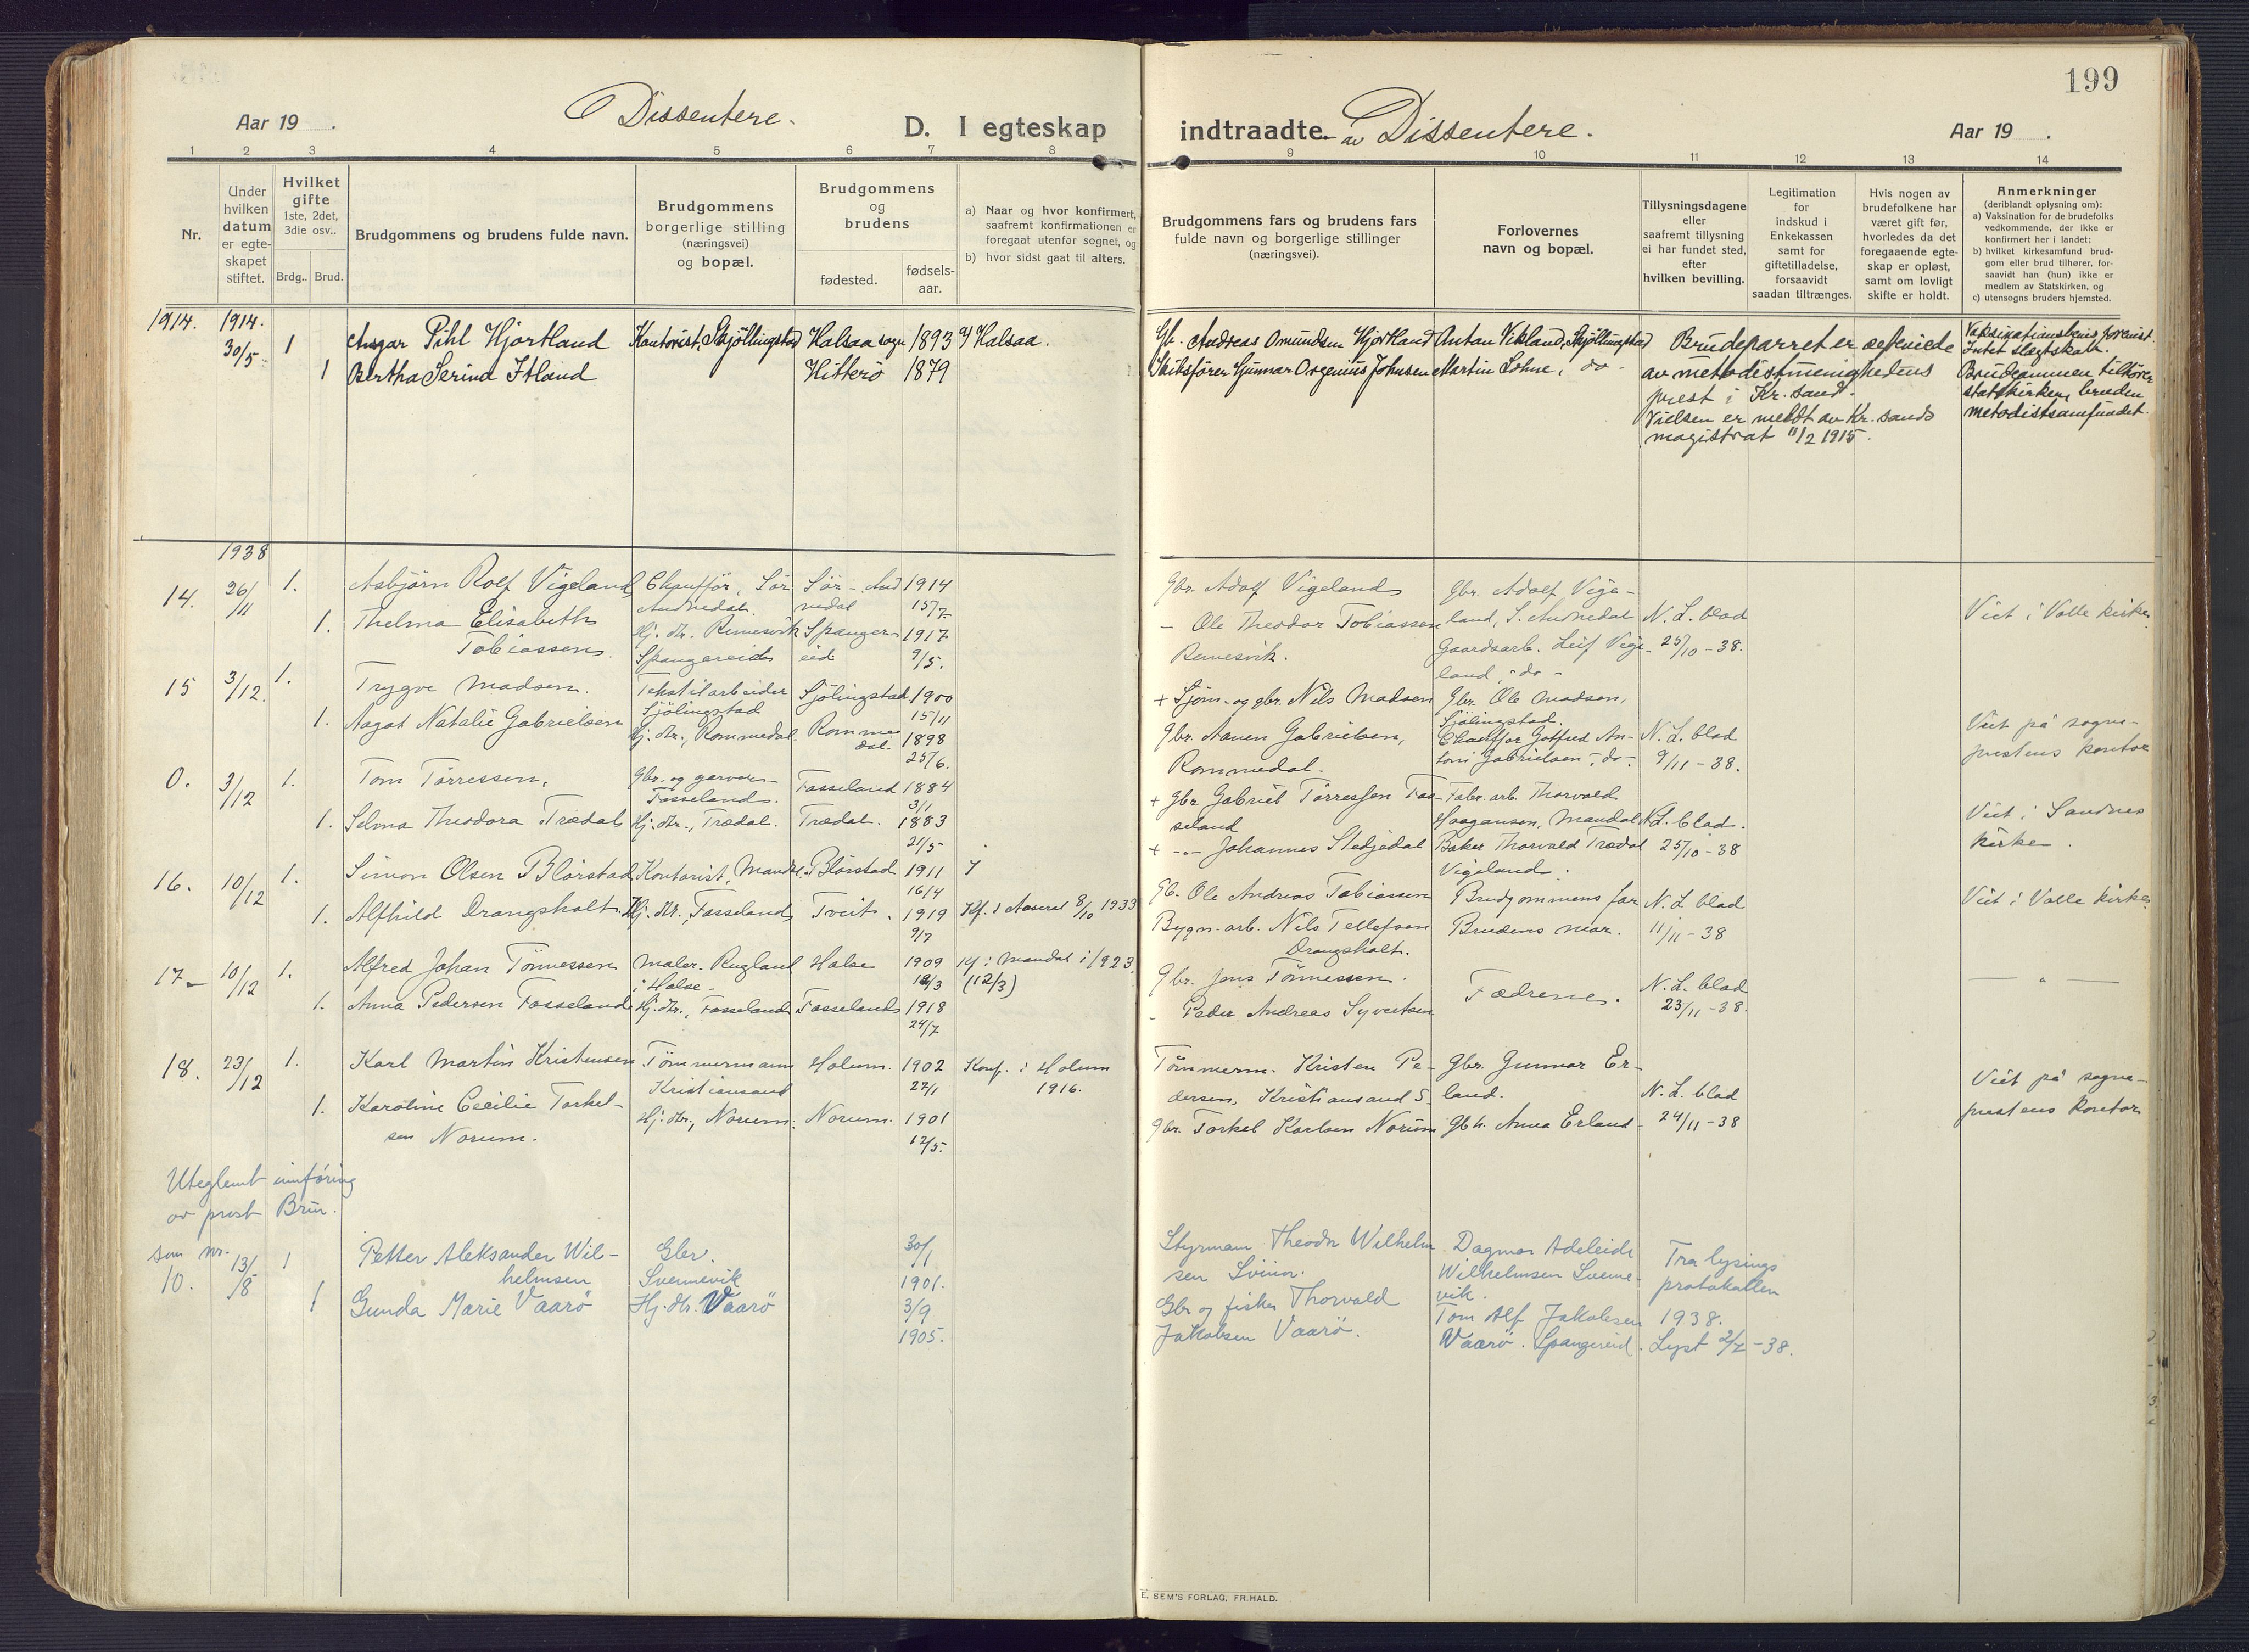 199
Aar 19 .
Dissentere.
D. I egteskap
indtraadte av Dissentere.
Aar 19 .
1 2 3 4 5 6 7 8
9 10 11 12 13 14
Nr.
Under
hvilken
datum
er egte-
skapet
stiftet.
Hvilket
gifte
1ste, 2det,
3die osv..
Brdg.. Brud.
Brudgommens og brudens fulde navn.
Brudgommens
borgerlige stilling
(næringsvei)
og bopæl.
Brudgommens
og
brudens
fødested.
fødsels-
aar.
a) Naar og hvor konfirmert,
saafremt konfirmationen er
foregaat utenfor sognet, og
b) hvor sidst gaat til alters.
Brudgommens fars og brudens fars
fulde navn og borgerlige stillinger
(næringsvei).
Forlovernes
navn og bopæl.
Tillysningsdagene
eller
saafremt tillysning
ei har fundet sted,
efter
hvilken bevilling.
Legitimation
for
indskud i
Enkekassen
samt for
giftetilladelse,
forsaavidt
saadan tiltrænges.
Hvis nogen av
brudefolkene har
været gift før,
hvorledes da det
foregaaende egte-
skap er opløst,
samt om lovligt
skifte er holdt.
Anmerkninger
(deriblandt oplysning om):
a) Vaksination for de brudefolks
vedkommende, der ikke er
konfirmert her i landet;
b) hvilket kirkesamfund brud-
gom eller brud tilhører, for-
saavidt han (hun) ikke er
medlem av Statskirken, og
c) utensogns bruders hjemsted.
1914. 1914.
30/5 1 Ansgar Pihl Hjortland Kontorist, Skjöllingstad Halsaa sogn 1893 Halsaa.
1 Bertha Serine Itland Hitterö 1879
Gb. Andreas Omundsen Hjortland Anton Vikland, Skjöllingstad
Skibsförer Gunnar Orgenius Johnsen Martin Lohne, do
Brudeparret er
av metodistmenighedens
prest i Kr.sand.
Vielsen er meldt av Kr.sands
magistrat 11/2 1915.
Intet slegtskab.
Brudgommen tilhörer
statskirken, bruden
metodistsamfundet.
1938
14. 26/11 1. Asbjörn Rolf Vigeland Chaufför, Sör Sör-Aud 1914
Audnedal. nedal 15/7
1. Thelma Elisabeth Hj. dtr. Remesvik Spanger- 1917
Tobiassen Spangereid eid 9/5.
Gbr. Adolf Vigeland Gbr. Adolf Vige-
- Ole Theodor Tobiassen land, S. Audnedal N. L. blad
Remesvik. Gaardsarb. Leif Vige- 25/10-38.
land, do -
Viet i Valle kirke
15 3/12. 1. Trygve Madsen. Tekstilarbeider Sjölingstad 1900
Sjölingstad 15/11
1. Aagot Natalie Gabrielsen Hj. dtr., Rommedal. Romme 1898
dal. 25/6.
+ Sjöm- og gbr. Nils Madsen Gbr. Ole Madsen,
Sjölingstad.
Gbr. Aanen Gabrielsen, Chauffør Gotfred An- N. L. blad
Rommedal. toni Gabrielsen, do. 9/11-38.
Viet på sogne-
prestens kontor
0. 3/12 1. Tom Tørressen, Gbr. og garver Fasseland 1884
Fasseland. 3/1
1. Selma Theodora Trædal Hj. dtr., Trædal. Trædal. 1883
21/5
+ Gbr. Gabriel Tørressen Fas- Fabr. arb. Thorvald
seland Haagensen, Mandal N.L. blad.
+ -"- Johannes Stedjedal Baker Thorvald Trædal 25/10-38
Vigeland.
Viet i Sandnes
kirke.
16. 10/12 1. Simon Olsen Blørstad Kontorist, Mandal. Blørstad 1911
16/4
1. Alfhild Drangsholt. Hj. dtr., Fasseland Tveit. 1919 Kf. i Aaseral 8/10 1933
9/7
Gb. Ole Andreas Tobiassen Brudgommens far N. L. blad
Bygn.-arb. Nils Tellefsen Brudens mor. 11/11-38
Drangsholt.
Viet i Valle kirke
17- 10/12 1. Alfred Johan Tönnessen Maler. Rugland Halse 1909 Kf. i Mandal i 1923.
i Halse (12/3)
1. Anna Pedersen Fasseland Hj. dtr., Fasseland Fasseland 1918
24/7
Gbr. Jens Tönnessen.
- Peder Andreas Syvertsen Fædrene. N. L. blad
23/11-38.
— " —
18. 23/12 1. Karl Martin Kristensen Tömmermann Holum. 1902 Konf. i Holum
Kristiansand 22/1 1916.
1. Karoline Cecilie Torkel- Hj. dtr., Norum. Norum. 1901
sen Norum. 12/5.
Tömmerm. Kristen Pe- Gbr. Gunnar Er-
dersen, Kristiansand S. land. N. L. blad
Gbr. Torkel Karlsen Norum Gbh. Anna Erland 24/11-38
Viet på sogne-
prestens kontor
Uteglemt innföring
av prost Brun.
som nr.
10. 13/8 1 Petter Aleksander Wil- Gbr. 30/1
helmsen Svennevik 1901.
1 Gunda Marie Vaarö Hj. dtr. Vaarö 3/9
1905.
Styrmann Theodor Wilhelm Dagmar Adeleide Fra lysings
sen Wilhelmsen Svenne- protokollen
Gbr og fisker Thorvald vik. 1938.
Jakobsen Vaarö. Tom Alf Jakobsen
Vaarö. Spangereid. Lyst 2/7-38.
E. SEM'S FORLAG, FR.HALD.